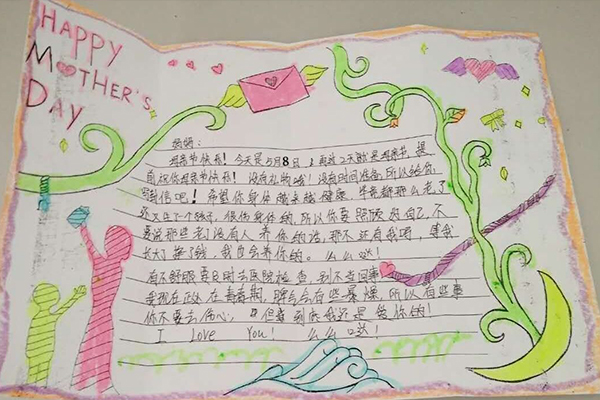 HAPPY
MOTHER'S
DAY
妈妈：
母亲节快乐！今天是5月8日，再过2天就是母亲节，提
前祝你母亲节快乐！没有礼物哦！没有时间准备，所以给你
写封信吧！希望你身体越来越健康，毕竟都那么老了
还又生了个孩子，很伤身体的，所以你要照顾好自己，不
要说那些老了没有人养你的话，那不还有我嘛，等我
长大了挣了钱，我会养你的。么么哒！
有不舒服要及时去医院检查，别不当回事
我现在正处在青春期，脾气会有些暴躁，所以有些事
你不要去伤心，但到底我还是爱你的！
I Love You! 么么哒！